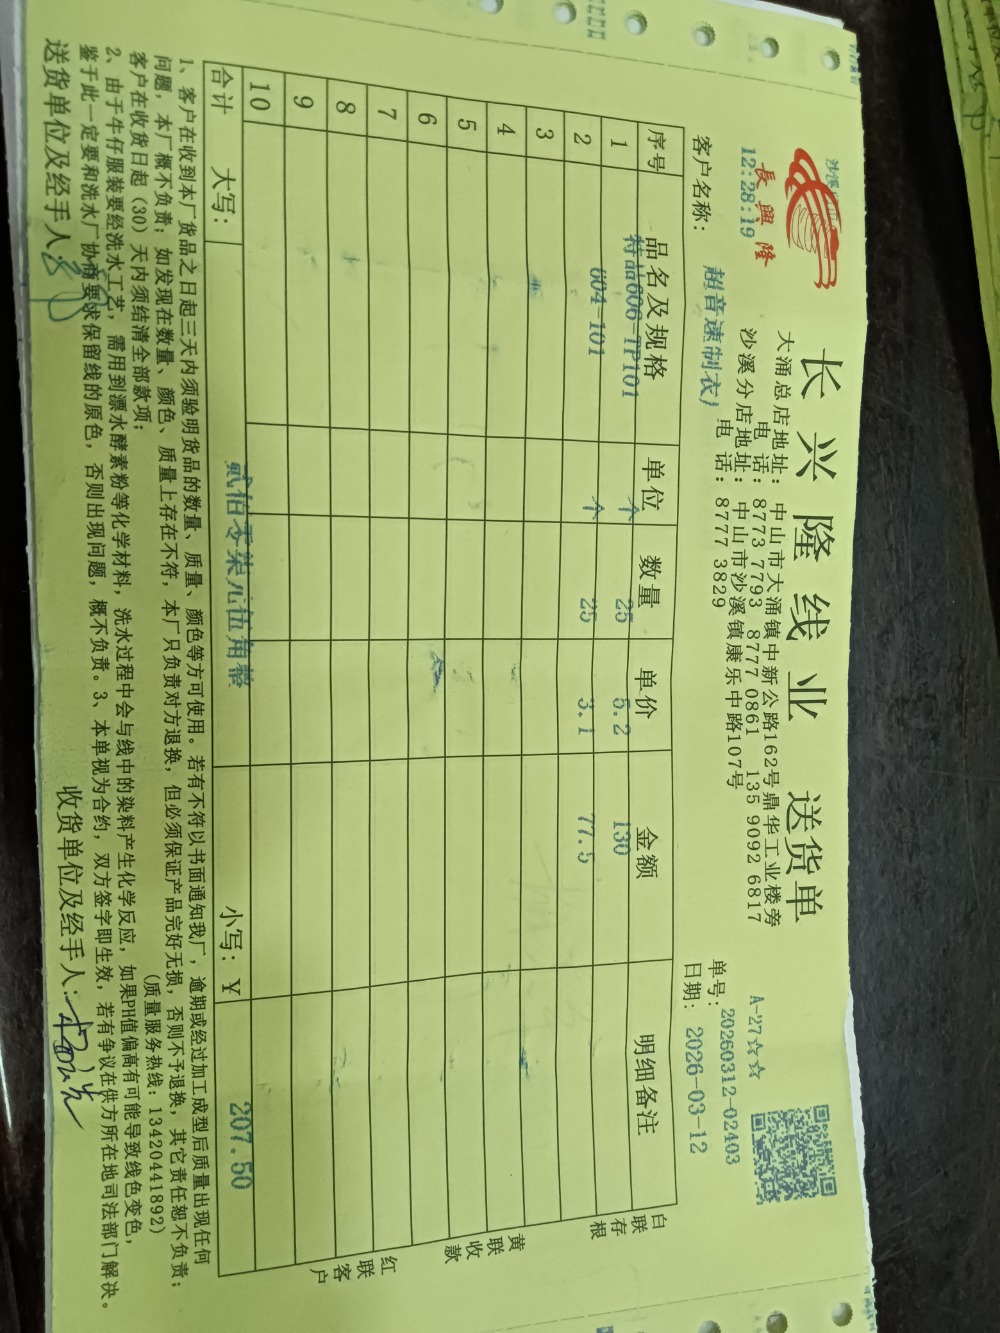 长兴隆线业 送货单
A-27☆☆
長興隆
12:28:19
大涌总店地址: 中山市大涌镇中新公路162号鼎华工业楼旁
电 话: 8773 7793 8777 0861 135 9092 6817
沙溪分店地址: 中山市沙溪镇康乐中路107号
电 话: 8777 3829
单号: 20260312-02403
客户名称: 超音速制衣厂
日期: 2026-03-12
序号 品名及规格 单位 数量 单价 金额 明细备注
1 特品606-TP101 个 25 5.2 130
2 604-101 个 25 3.1 77.5
3
4
5
6
7
8
9
10
合计 大写: 贰佰零柒元伍角整 小写: ¥ 207.50
白联存根
黄联收款
红联客户
1、客户在收到本厂货品之日起三天内须验明货品的数量、质量、颜色等方可使用。若有不符以书面通知我厂,逾期或经过加工成型后质量出现任何
问题,本厂概不负责;如发现在数量、颜色、质量上存在不符,本厂只负责对方退换,但必须保证产品完好无损,否则不予退换,其它责任恕不负责;
客户在收货日起(30)天内须结清全部款项; (质量服务热线:13420441892)
2、由于牛仔服装要经洗水工艺,需用到漂水酵素粉等化学材料,洗水过程中会与线中的染料产生化学反应,如果PH值偏高有可能导致线色变色,
鉴于此一定要和洗水厂协商要求保留线的原色,否则出现问题,概不负责。3、本单视为合约,双方签字即生效,若有争议在供方所在地司法部门解决。
送货单位及经手人: 收货单位及经手人: